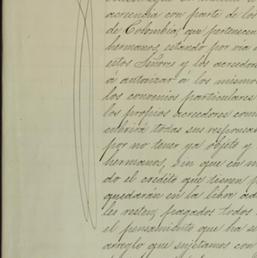 acreencia con parte de los
de Colombia, que pertenecen
hermanos, estando por via de
estos Señores y los acreedores
á autorizar á los mismos
los convenios particulares
los propios acreedores com
cubrirá todas sus responsa
por no tener ya objeto y
hermanos, sin que en
do el crédito que tienen
quedarán en la libre ad
les resten, pagados todos
el pensamiento que ha se
arreglo que sujetamos con